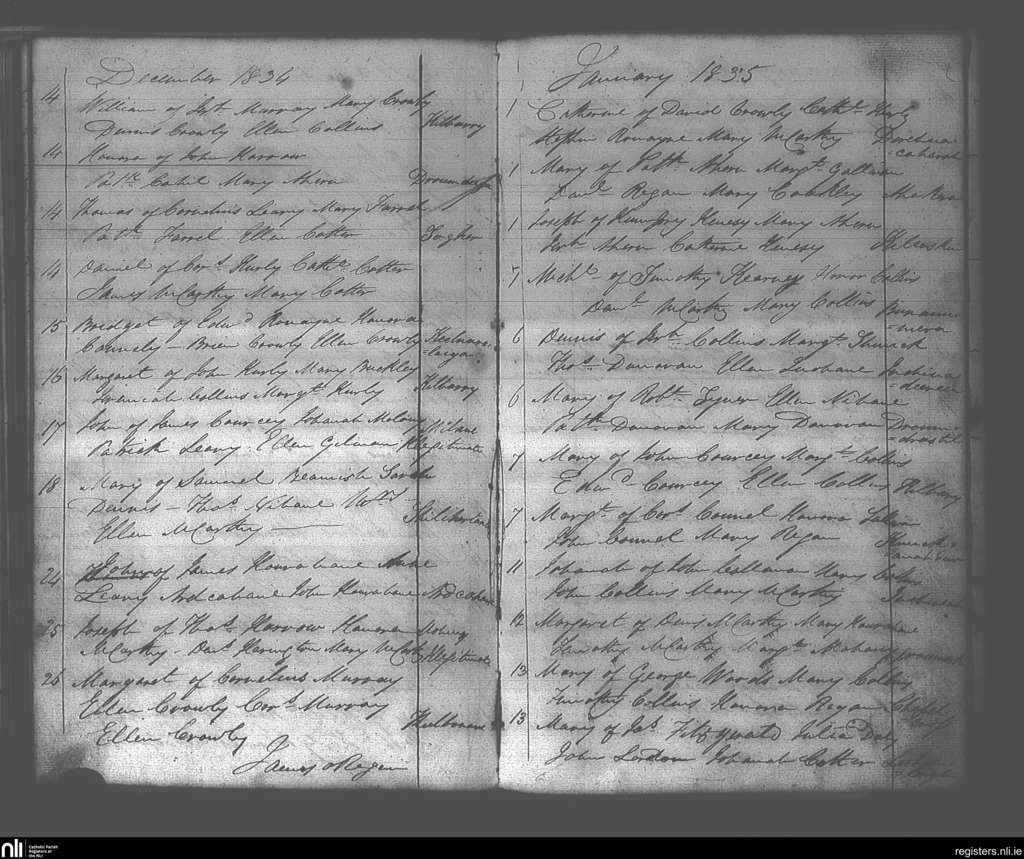 December 1834
14 William of Jerh. Murray Mary Crowly
Dennis Crowly Ellen Collins Kilbarry
14 Honora of John Harrow
Patk. Cahil Mary Ahern
14 Thomas of Cornelius Leary Mary Farrel
Patk. Farrel Ellen Cotter Togher
14 Daniel of Cors. Hurly Cathe. Cotter
James McCarthy Mary Cotter
15 Bridget of Edwd. Ronayne Honora
Connely - Brien Crowly Ellen Crowly
16 Margaret of John Hurly Mary Buckley
Collins Margt. Hurly Kilbarry
17 John of James Courcey Johanah Molony
Patrick Leary. Ellen Gilman Illegitimate
18 Mary of Samuel Beamish Sarah
Dennis - Thos. Nihane
Ellen McCarthy
24 John of James Hourahane Anne
Leary Ardcahane John Hourahane Ardcahan
25 Joseph of Thos. Harrow Honora
McCarthy - Danl. Harington Mary McCarthy Illegitimate
26 Margaret of Cornelius Murray
Ellen Crowly Cors. Murray
Ellen Crowly
James O'Regan
January 1835
1 Catherine of David Crowly Cathe. Hurly
Stephen Ronayne Mary McCarthy
1 Mary of Patk. Ahern Margt. Gallivan
Danl. Regan Mary Coakley
1 Joseph of Humfry Henesy Mary Ahern
Jerh. Ahern Catherine Henesy
7 Michl. of Timothy Kearney Honor Collins
Danl. McCarthy Mary Collins
6 Dennis of Jerh. Collins Margt.
Thos. Donovan Ellen
6 Mary of Robt. Tyner Ellen Nihane
Patk. Donovan Mary Donovan
7 Mary of John Courcey Margt. Collins
Edwd. Courcey Ellen Collins Kilbarry
7 Margt. of Cors. Connel Honora
John Connel Mary Regan
11 Johanah of John Callanan Mary Cotter
John Collins Mary McCarthy
12 Margaret of Dens. McCarthy Mary Hourahane
Timothy McCarthy Margt.
13 Mary of George Woods Mary Collins
Timothy Collins Honora Regan
13 Mary of Jas. Fitzgerald Julia Daly
John Lordan Johanah Cotter
nli
Catholic Parish
Registers at
the NLI
registers.nli.ie